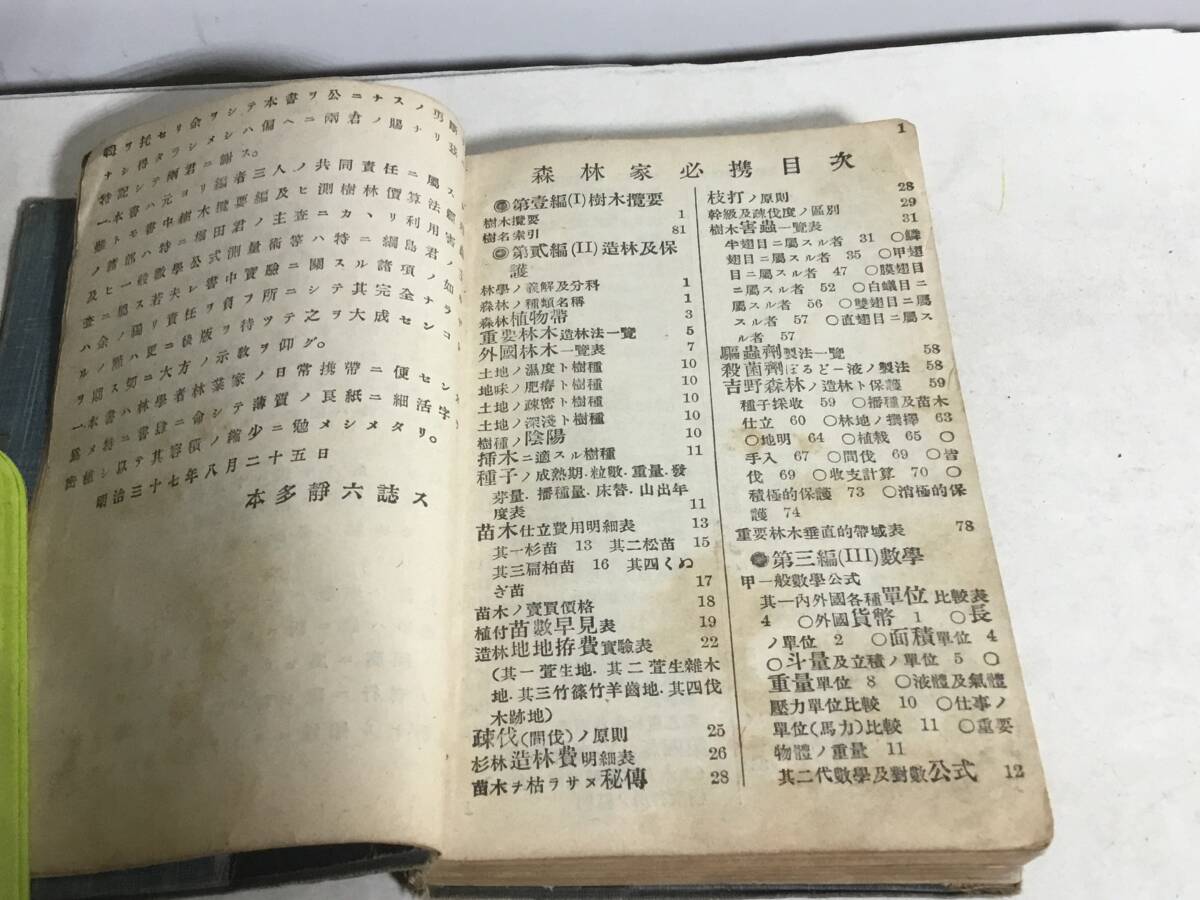 ヲ托セリ余ヲシテ本書ヲ公ニナスノ勇
ナシ得タラシメシハ偏ヘニ兩君ノ賜ナリ
特記シテ兩君ニ謝ス。
一本書ハ元ヨリ編者三人ノ共同責任ニ屬ス
雖トモ書中樹木攬要編及ヒ測樹林價算法
ノ諸部ハ特ニ福田君ノ主査ニカヽリ利用
及ヒ一般數學公式測量術等ハ特ニ綱島君ノ
査ニ屬ス若夫レ書中實驗ニ關スル諸項ノ如
ハ余ノ獨リ責任ヲ負フ所ニシテ其完全ナラ
ルノ點ハ更ニ後版ヲ待ツテ之ヲ大成センコ
ヲ期ス切ニ大方ノ示敎ヲ仰グ。
一本書ハ林學者林業家ノ日常携帶ニ便セン
爲メ特ニ書肆ニ命シテ薄質ノ良紙ニ細活字
密植シ以テ其容積ノ縮少ニ勉メシメタリ。
明治三十七年八月二十五日
本多靜六誌ス
1
森林家必携目次
第壹編(I)樹木攬要
樹木攬要 1
樹名索引 81
第貳編(II)造林及保
護
林學ノ義解及分科 1
森林ノ種類名稱 1
森林植物帶 3
重要林木造林法一覽 5
外國林木一覽表 7
土地ノ濕度ト樹種 10
地味ノ肥瘠ト樹種 10
土地ノ疎密ト樹種 10
土地ノ深淺ト樹種 10
樹種ノ陰陽 10
揷木ニ適スル樹種 11
種子ノ成熟期.粒數.重量.發
芽量.播種量.床替.山出年
度表 11
苗木仕立費用明細表 13
其一杉苗 13 其二松苗 15
其三扁柏苗 16 其四くぬ
ぎ苗 17
苗木ノ賣買價格 18
植付苗數早見表 19
造林地地拵費實驗表 22
(其一萱生地.其二萱生雜木
地.其三竹篠竹羊齒地.其四伐
木跡地)
疎伐(間伐)ノ原則 25
杉林造林費明細表 26
苗木ヲ枯ラサヌ秘傳 28
枝打ノ原則 28
幹級及疎伐度ノ區別 29
樹木害蟲一覽表 31
半翅目ニ屬スル者 31 ○鱗
翅目ニ屬スル者 35 ○甲翅
目ニ屬スル者 47 ○膜翅目
ニ屬スル者 52 ○白蟻目ニ
屬スル者 56 ○雙翅目ニ屬
スル者 57 ○直翅目ニ屬ス
ル者 57
驅蟲劑製法一覽 58
殺菌劑ぼるどー液ノ製法 58
吉野森林ノ造林ト保護 59
種子採收 59 ○播種及苗木
仕立 60 ○林地ノ撰擇 63
○地明 64 ○植栽 65 ○
手入 67 ○間伐 69 ○皆
伐 69 ○收支計算 70 ○
積極的保護 73 ○消極的保
護 74
重要林木垂直的帶域表 78
第三編(III)數學
甲一般數學公式
其一內外國各種單位比較表
4 ○外國貨幣 1 ○長
ノ單位 2 ○面積單位 4
○斗量及立積ノ單位 5 ○
重量單位 8 ○液體及氣體
壓力單位比較 10 ○仕事ノ
單位(馬力)比較 11 ○重要
物體ノ重量 11
其二代數學及對數公式 12